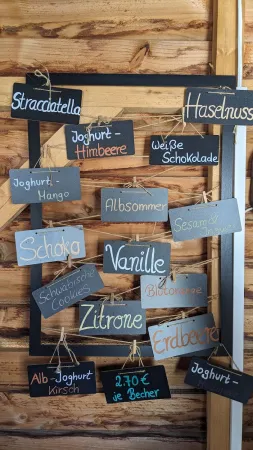 Stracciatella
Haselnuss
Joghurt-
Himbeere
Weiße
Schokolade
Joghurt-
Mango
Albsommer
Sesam
Schoko
Vanille
Schwäbische
Cookies
Blutorange
Zitrone
Erdbeere
Alb-Joghurt
Kirsch
2.70 €
je Becher
Joghurt-